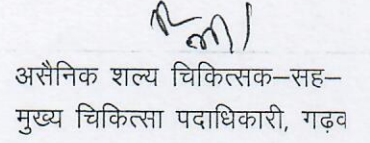 असैनिक शल्य चिकित्सक–सह–
मुख्य चिकित्सा पदाधिकारी, गढ़व